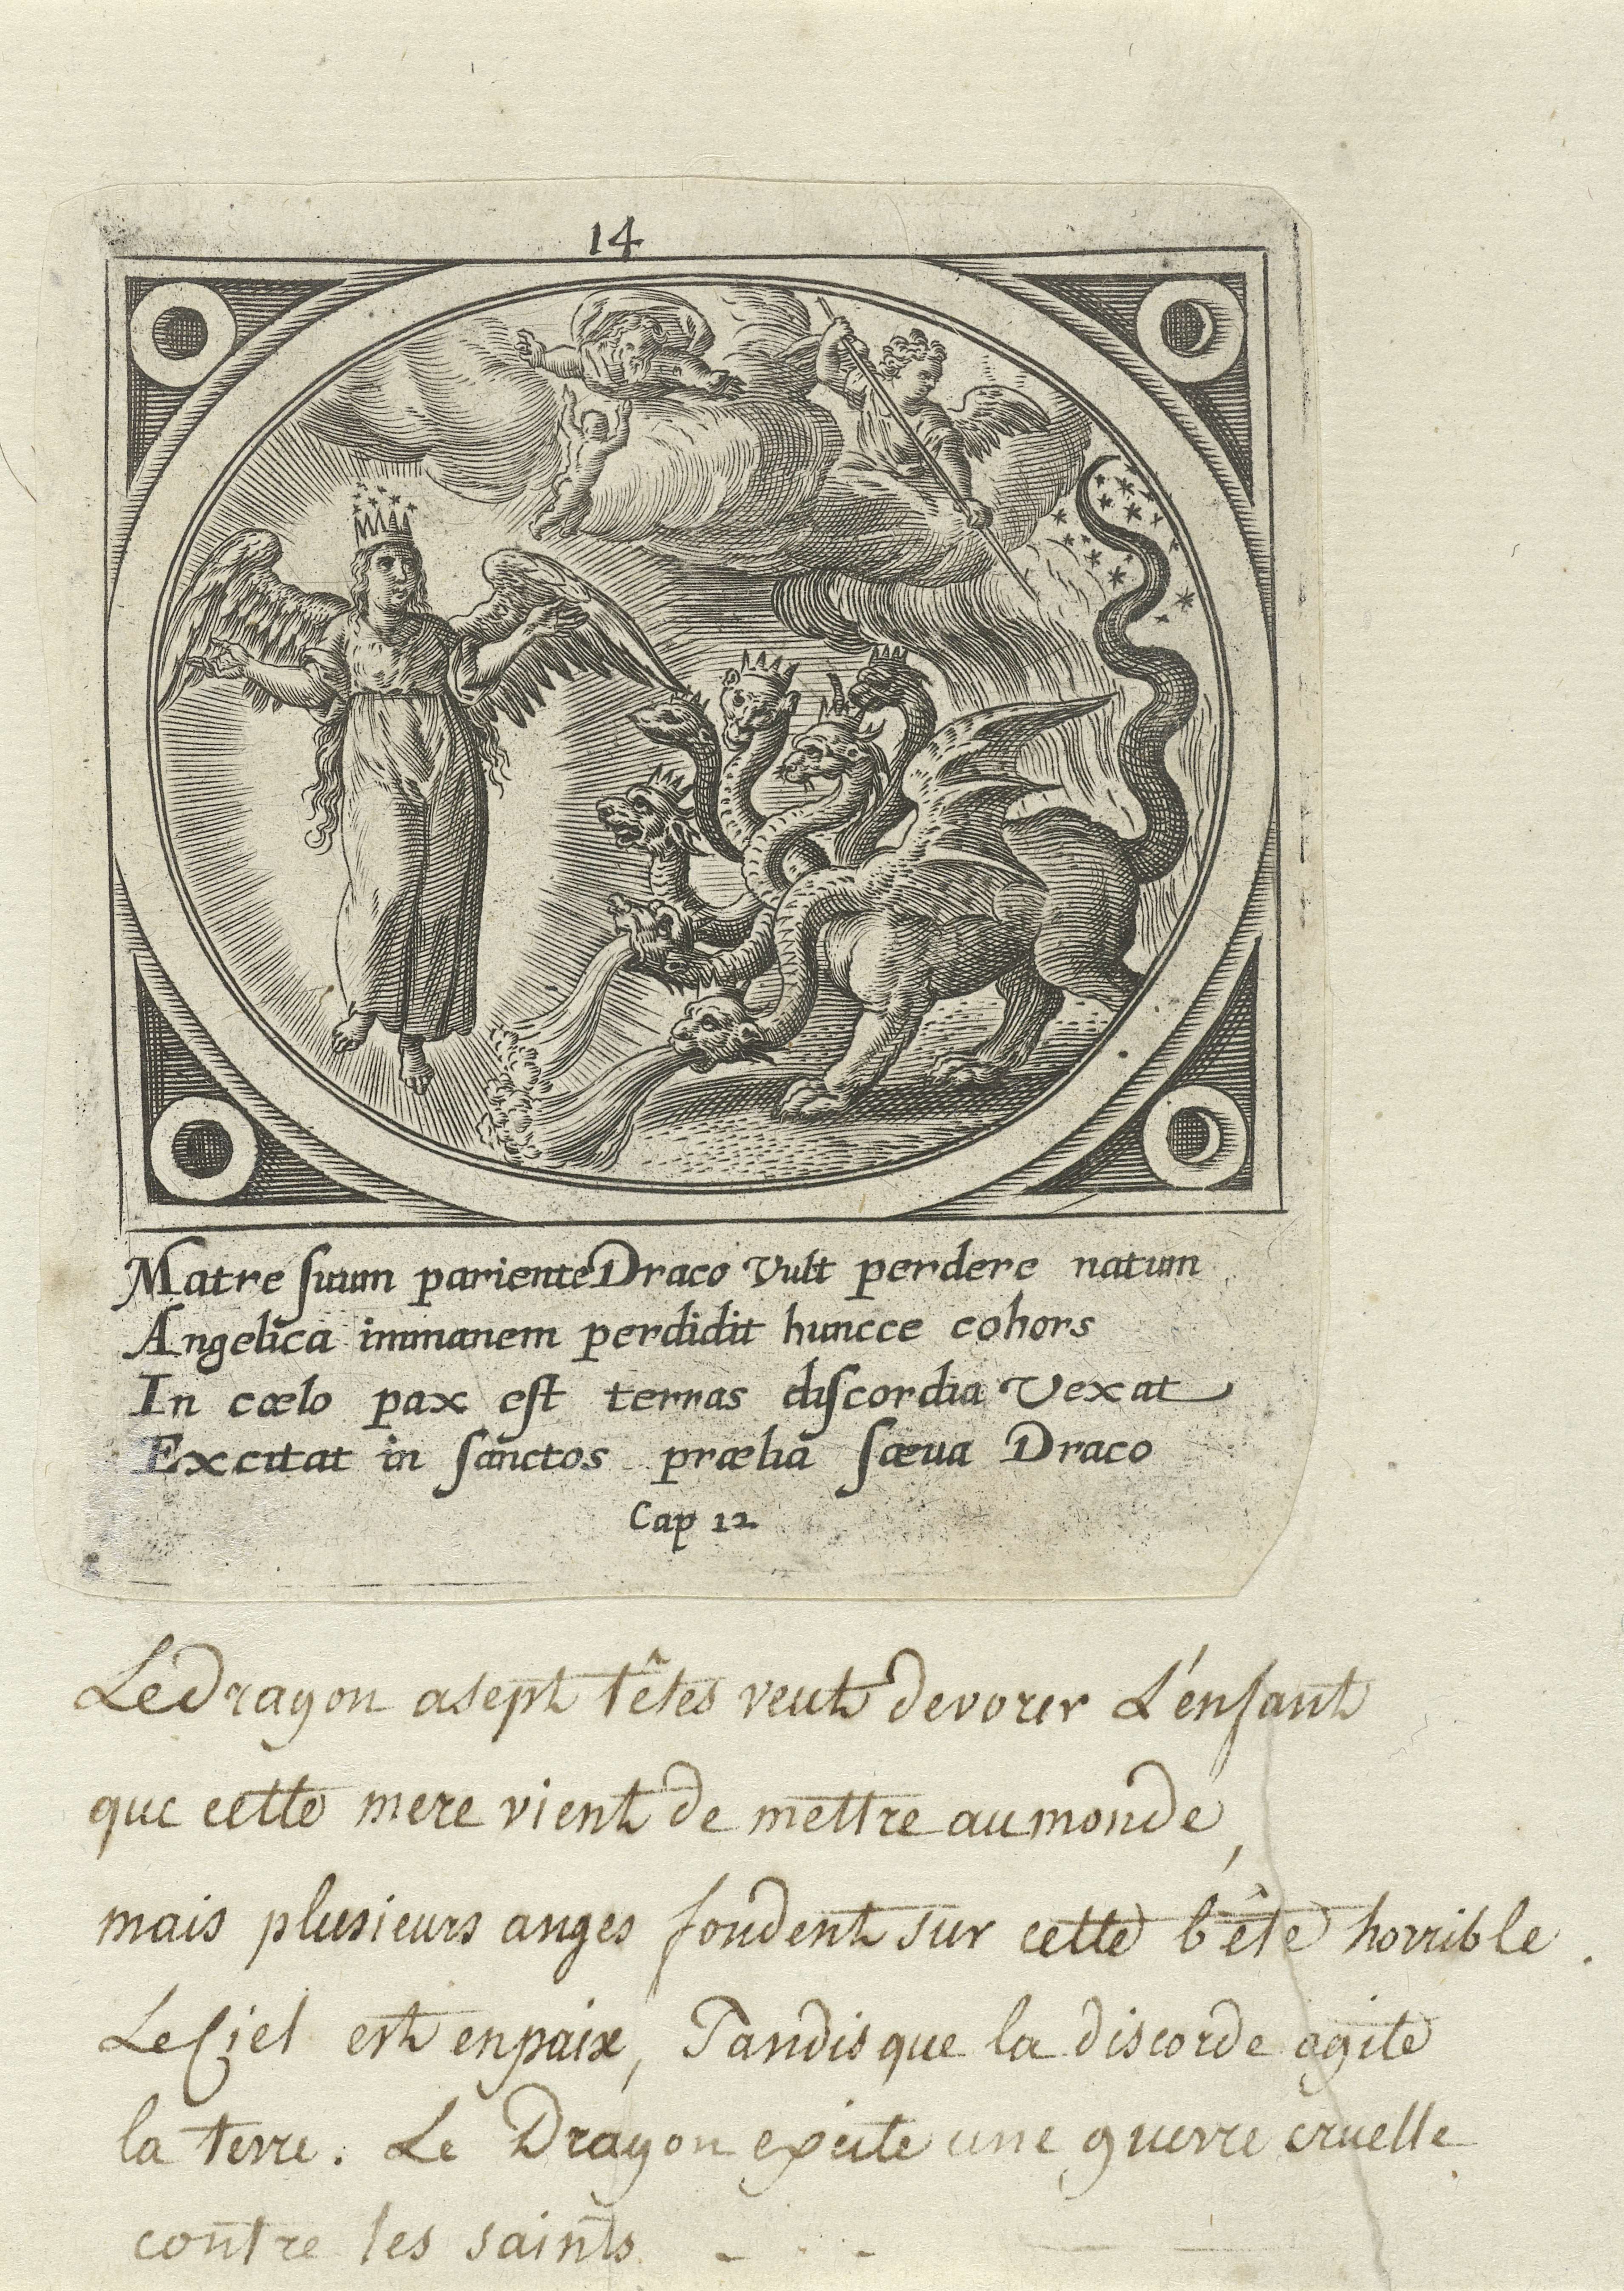 14
Matre ſuum parienteDraco Vult perdere natum
Angelica immanem perdidit huncce cohors
In cœlo pax eſt terras diſcordia Vexat
Excitat in ſanctos prælia ſæua Draco
Cap 12
Le Dragon a sept têtes veut devorer L'énfant
que cette mere vient de mettre au monde,
mais plusieurs anges fondent sur cette bête horrible.
Le Ciel est en paix, Tandis que la discorde agite
la terre. Le Dragon excite une guerre cruelle
contre les saints